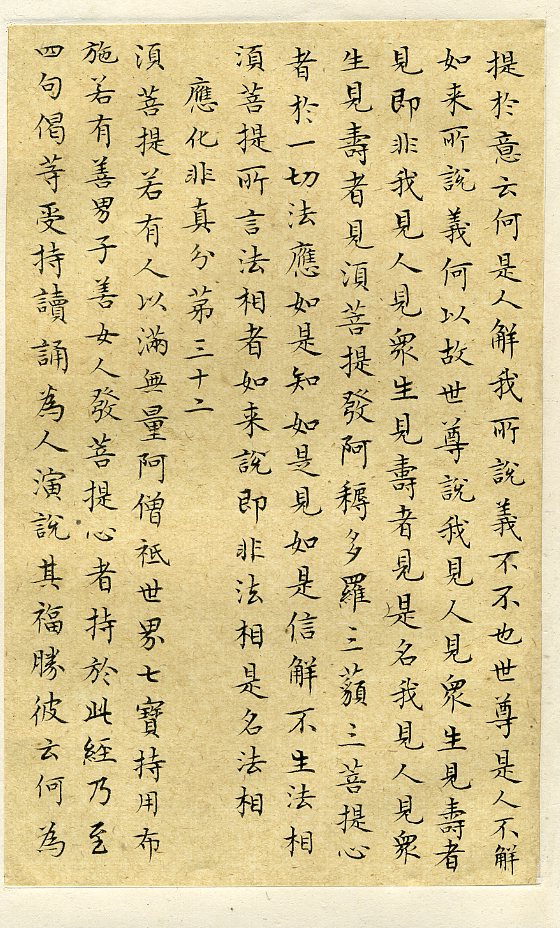 提於意云何是人解我所說義不不也世尊是人不解
如来所說義何以故世尊說我見人見衆生見壽者
見即非我見人見衆生見壽者見是名我見人見衆
生見壽者見須菩提發阿耨多羅三藐三菩提心
者於一切法應如是知如是見如是信解不生法相
須菩提所言法相者如来說即非法相是名法相
應化非真分苐三十二
須菩提若有人以滿無量阿僧祇世界七寶持用布
施若有善男子善女人發菩提心者持於此經乃至
四句偈等受持讀誦為人演說其福勝彼云何為